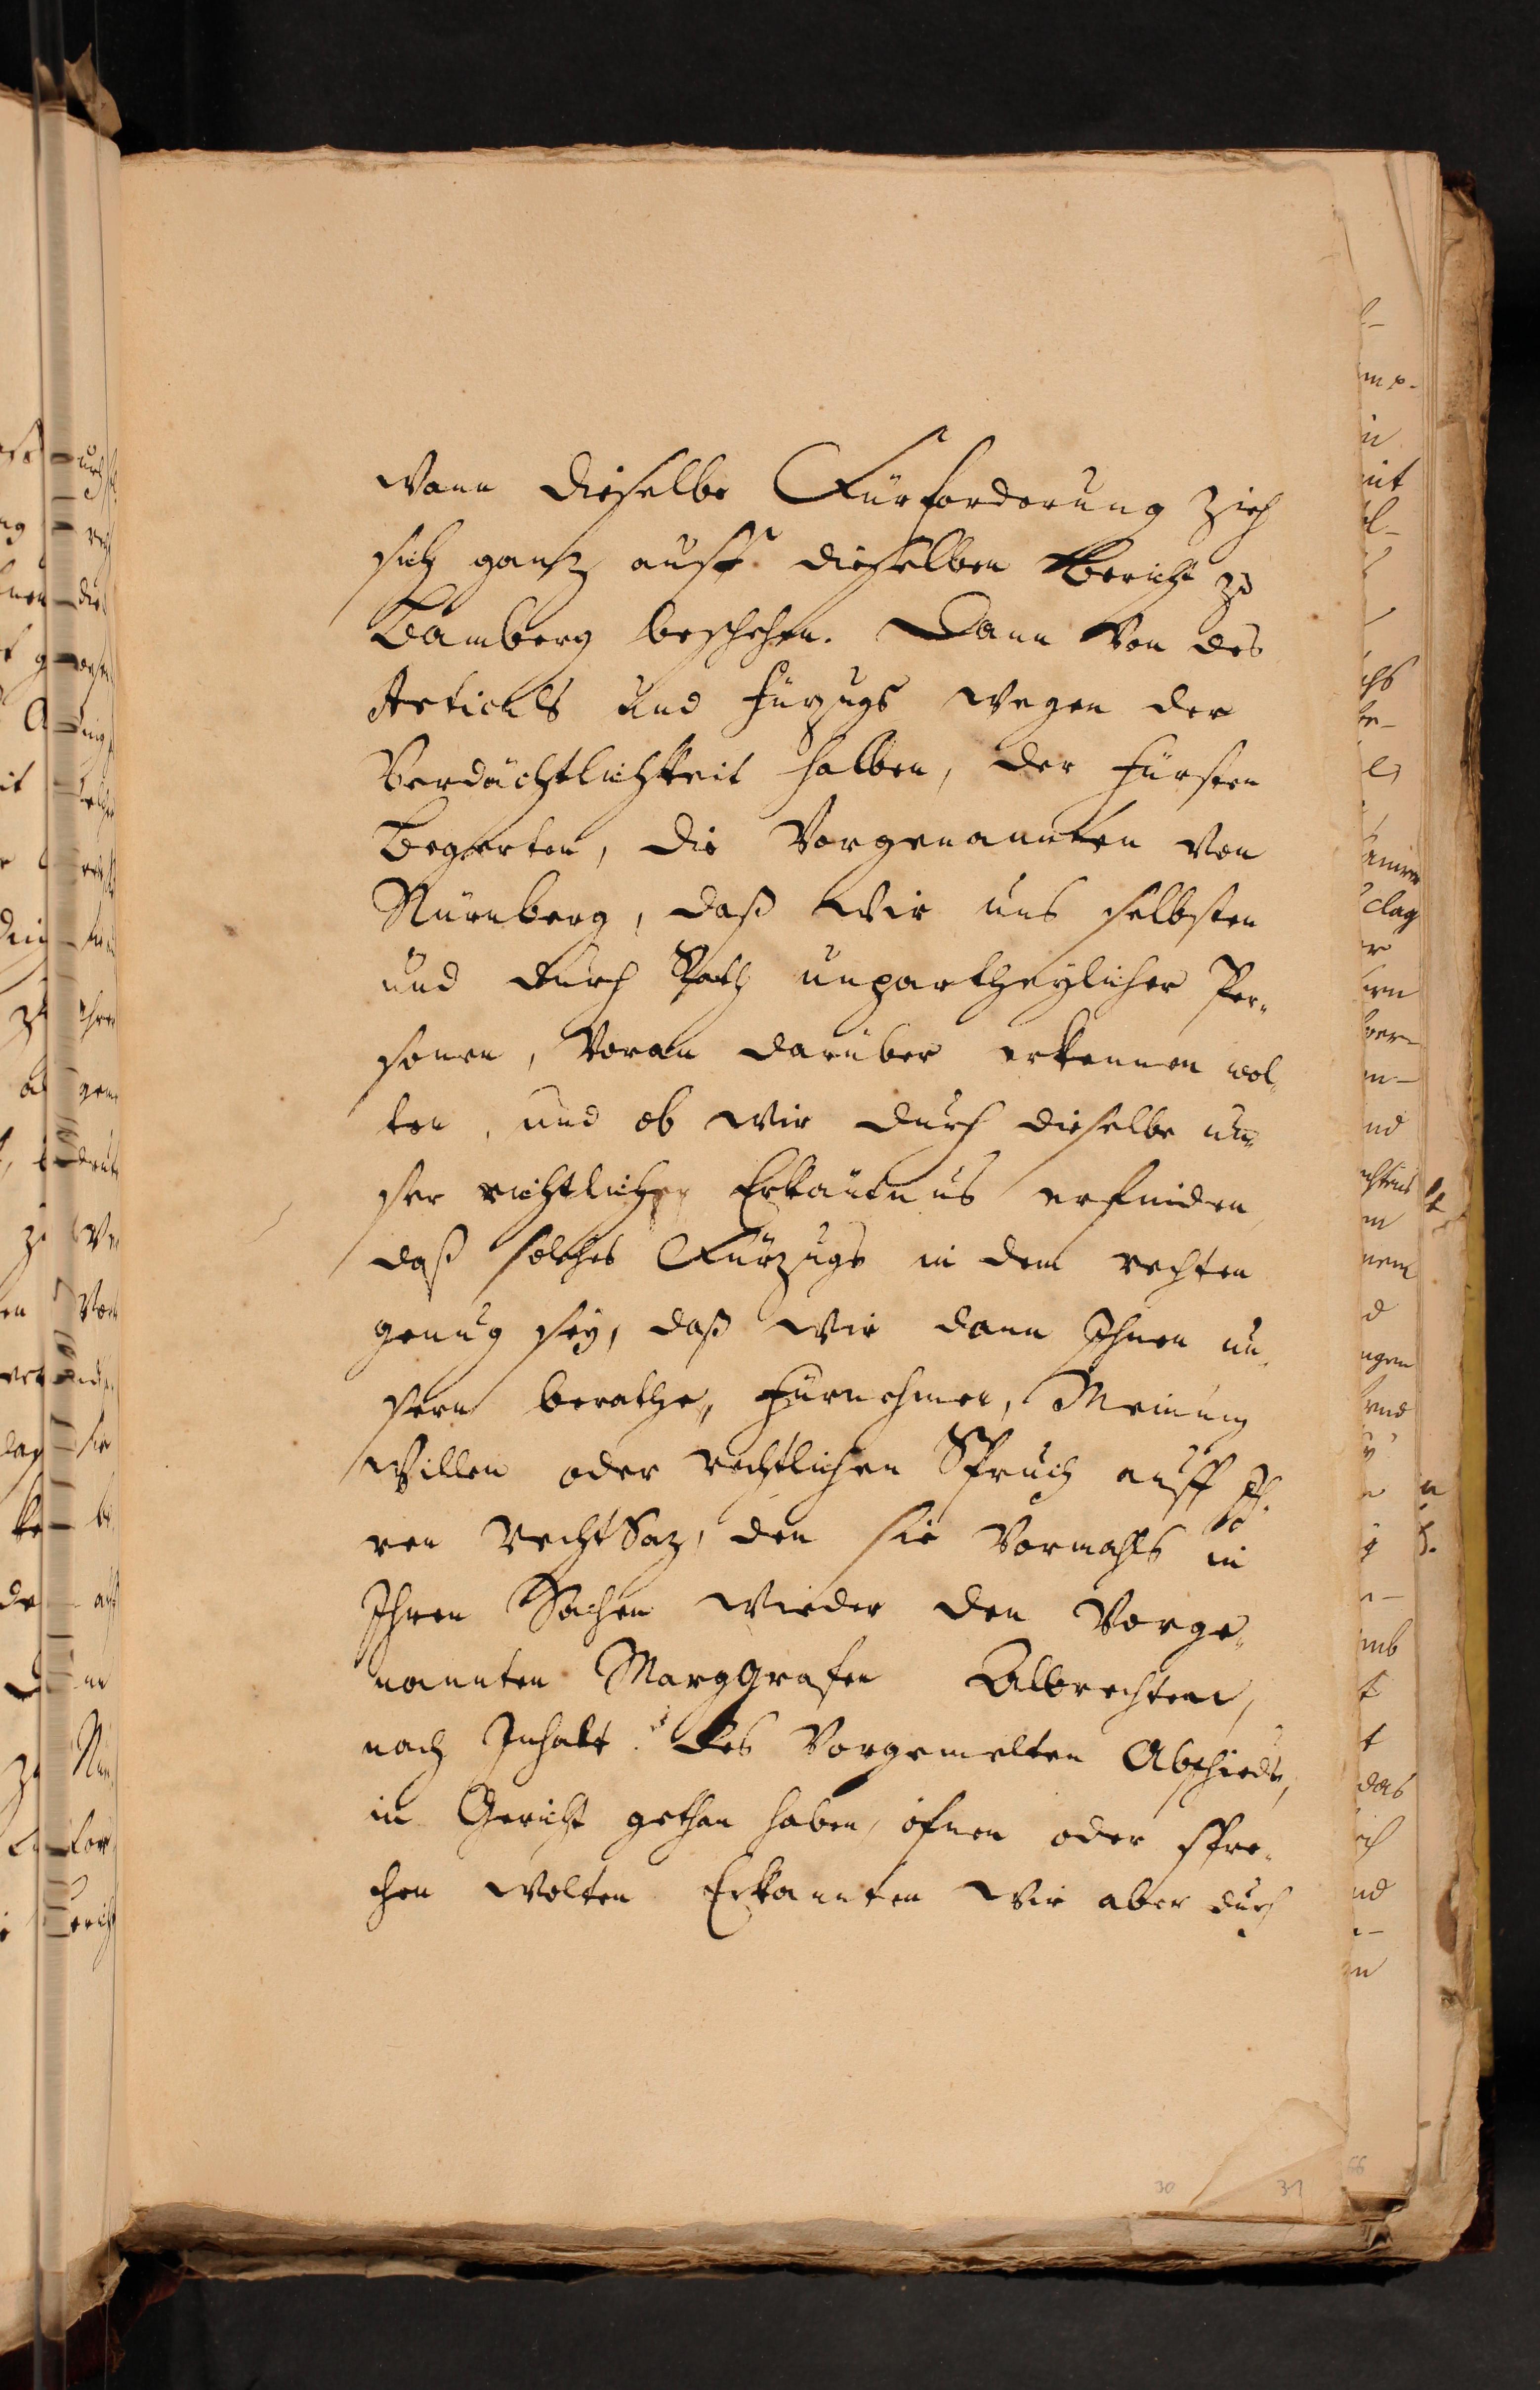 wann dieselbe Fürforderung zieh
sich gantz auff dieselben Bericht zu
Bamberg beschehen. Dann von des
Articuls und fürzugs wegen der
Verdächtlichkeit halben, der Fürsten
Begerten, die Vorgenannten von
Nürnberg, daß Wir uns selbsten
und durch Rath unpartheylicher Per¬
sonen, Voran darüber erkennen wol¬
ten, und ob wir durch dieselbe un¬
ser richtlicher Erkäntnus erfinden
daß solches Fürzugs in dem rechten
genug sey, daß wir dann Ihnen un¬
sern berathe, fürnehmen, Meinung
Willen oder rechtlichen Spruch auff Ih¬
ren RechtSaz, den sie Vormahls in
Ihren Sachen wieder den Vorge¬
nannten Marggrafen Albrechten,
nach Inhalt des Vorgemelten Abschieds,
in Gericht gethan haben, öfnen oder spre¬
chen wolten Erkannten Wir aber durch
30
31